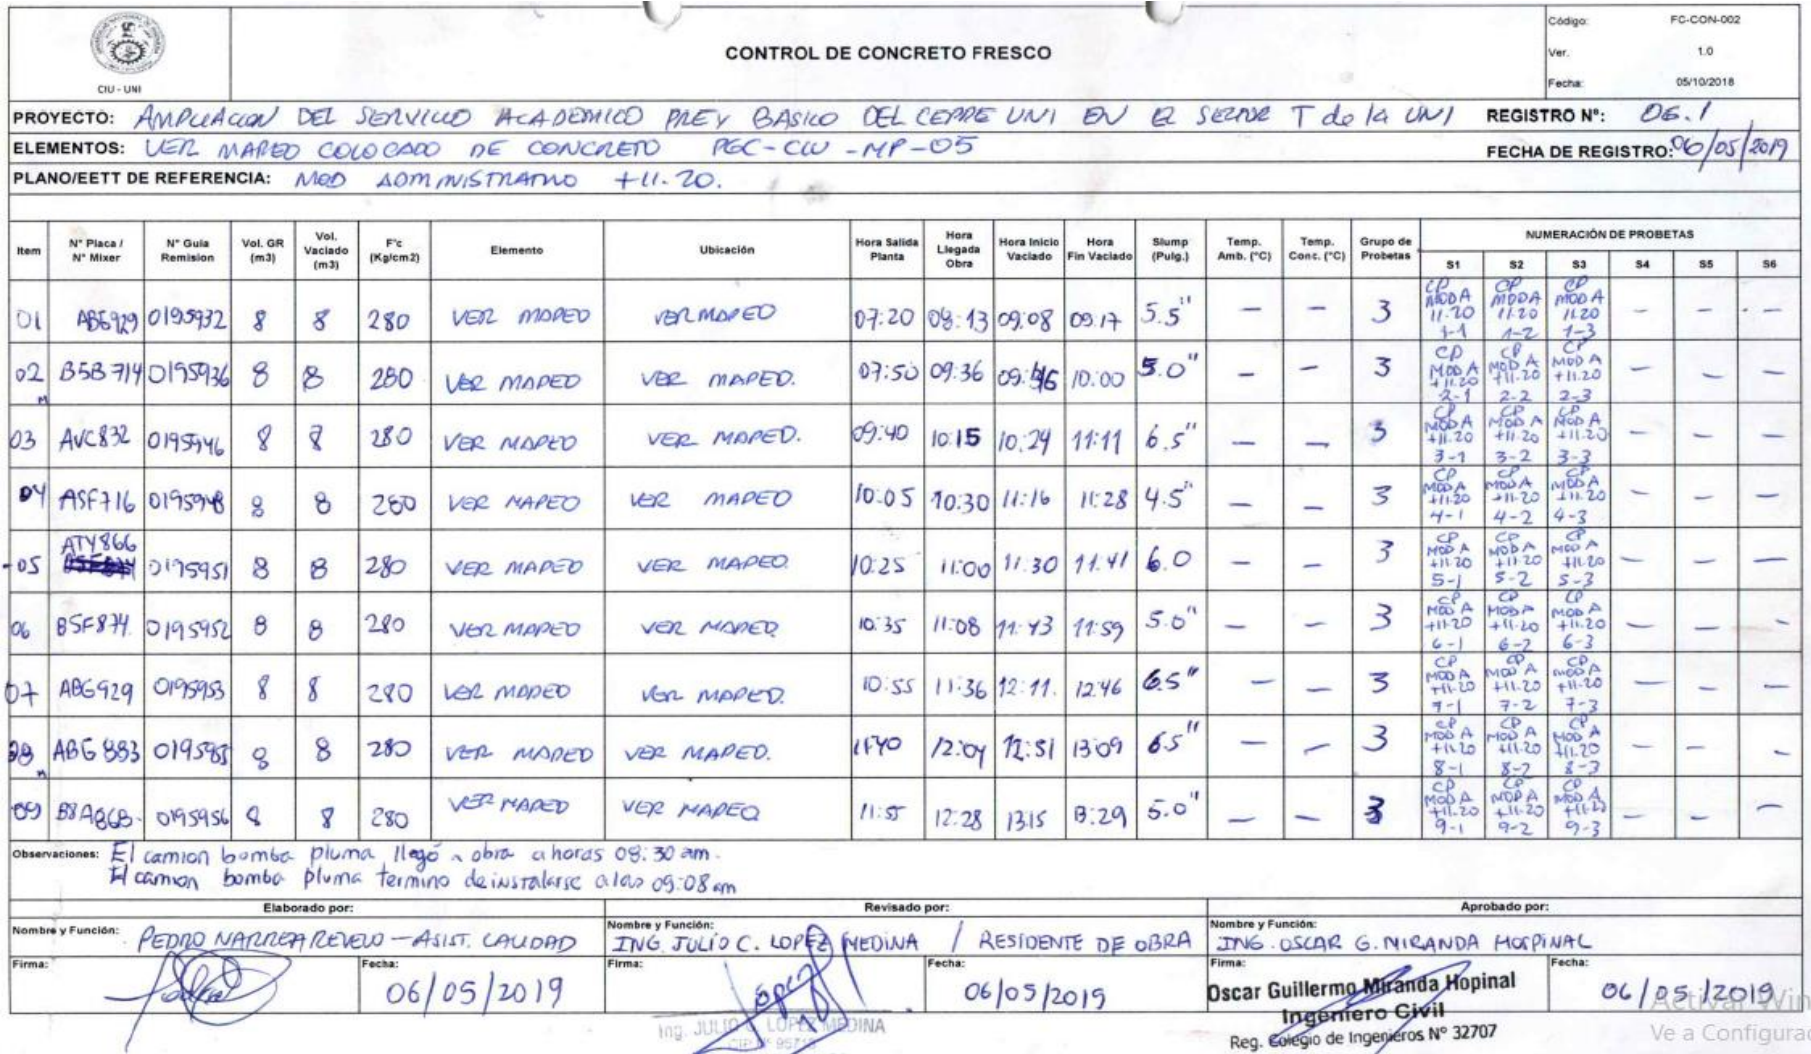 CIU - UNI
CONTROL DE CONCRETO FRESCO
Código: FC-CON-002
Ver. 1.0
Fecha: 05/10/2018
PROYECTO: AMPLIACION DEL SERVICIO ACADEMICO PRE Y BASICO DEL CEPRE UNI EN EL SECTOR T de la UNI REGISTRO N°: 06.1
ELEMENTOS: VER MAPEO COLOCADO DE CONCRETO PGC-CIU-MP-05 FECHA DE REGISTRO: 06/05/2019
PLANO/EETT DE REFERENCIA: MOD ADMINISTRATIVO +11.20.
Item N° Placa / N° Mixer N° Guia Remision Vol. GR (m3) Vol. Vaciado (m3) F'c (Kg/cm2) Elemento Ubicación Hora Salida Planta Hora Llegada Obra Hora Inicio Vaciado Hora Fin Vaciado Slump (Pulg.) Temp. Amb. (°C) Temp. Conc. (°C) Grupo de Probetas NUMERACIÓN DE PROBETAS
S1 S2 S3 S4 S5 S6
01 ABG929 0195932 8 8 280 VER MAPEO VER MAPEO 07:20 08:13 09:08 09:17 5.5" — — 3 CP MOD A 11.20 1-1 CP MOD A 11.20 1-2 CP MOD A 11.20 1-3 — — —
02 B5B714 0195936 8 8 280 VER MAPEO VER MAPEO. 07:50 09:36 09:46 10:00 5.0" — — 3 CP MOD A +11.20 2-1 CP MOD A +11.20 2-2 CP MOD A +11.20 2-3 — — —
03 AVC832 0195946 8 8 280 VER MAPEO VER MAPEO. 09:40 10:15 10:24 11:11 6.5" — — 3 CP MOD A +11.20 3-1 CP MOD A +11.20 3-2 CP MOD A +11.20 3-3 — — —
04 ASF716 0195948 8 8 280 VER MAPEO VER MAPEO 10:05 10:30 11:16 11:28 4.5" — — 3 CP MOD A +11.20 4-1 CP MOD A +11.20 4-2 CP MOD A +11.20 4-3 — — —
05 ATY866 0195951 8 8 280 VER MAPEO VER MAPEO. 10:25 11:00 11:30 11:41 6.0 — — 3 CP MOD A +11.20 5-1 CP MOD A +11.20 5-2 CP MOD A +11.20 5-3 — — —
06 BSF874 0195952 8 8 280 VER MAPEO VER MAPEO 10:35 11:08 11:43 11:59 5.0" — — 3 CP MOD A +11.20 6-1 CP MOD A +11.20 6-2 CP MOD A +11.20 6-3 — — —
07 ABG929 0195953 8 8 280 VER MAPEO VER MAPEO. 10:55 11:36 12:11. 12:46 6.5" — — 3 CP MOD A +11.20 7-1 CP MOD A +11.20 7-2 CP MOD A +11.20 7-3 — — —
08 ABG883 8 8 280 VER MAPEO VER MAPEO. 12:04 12:51 13:09 6.5" — — 3 CP MOD A +11.20 8-1 CP MOD A +11.20 8-2 CP MOD A +11.20 8-3 — — —
09 0195956 8 8 280 VER MAPEO VER MAPEO 11:55 12:28 13:15 13:29 5.0" — — 3 CP MOD A +11.20 9-1 CP MOD A +11.20 9-2 CP MOD A +11.20 9-3 — — —
Observaciones: El camion bomba pluma llegó a obra a horas 08:30 am.
El camion bomba pluma termino de instalarse a las 09:08 am
Elaborado por: Revisado por: Aprobado por:
Nombre y Función: PEDRO NARREA REVELO — ASIST. CALIDAD Nombre y Función: ING. JULIO C. LOPEZ MEDINA / RESIDENTE DE OBRA Nombre y Función: ING. OSCAR G. MIRANDA HOSPINAL
Firma: Fecha: 06/05/2019 Firma: Fecha: 06/05/2019 Firma: Fecha: 06/05/2019
Oscar Guillermo Miranda Hopinal
Ingeniero Civil
Reg. Colegio de Ingenieros N° 32707
Ing. JULIO C. LOPEZ MEDINA
Activar Win
Ve a Configurac